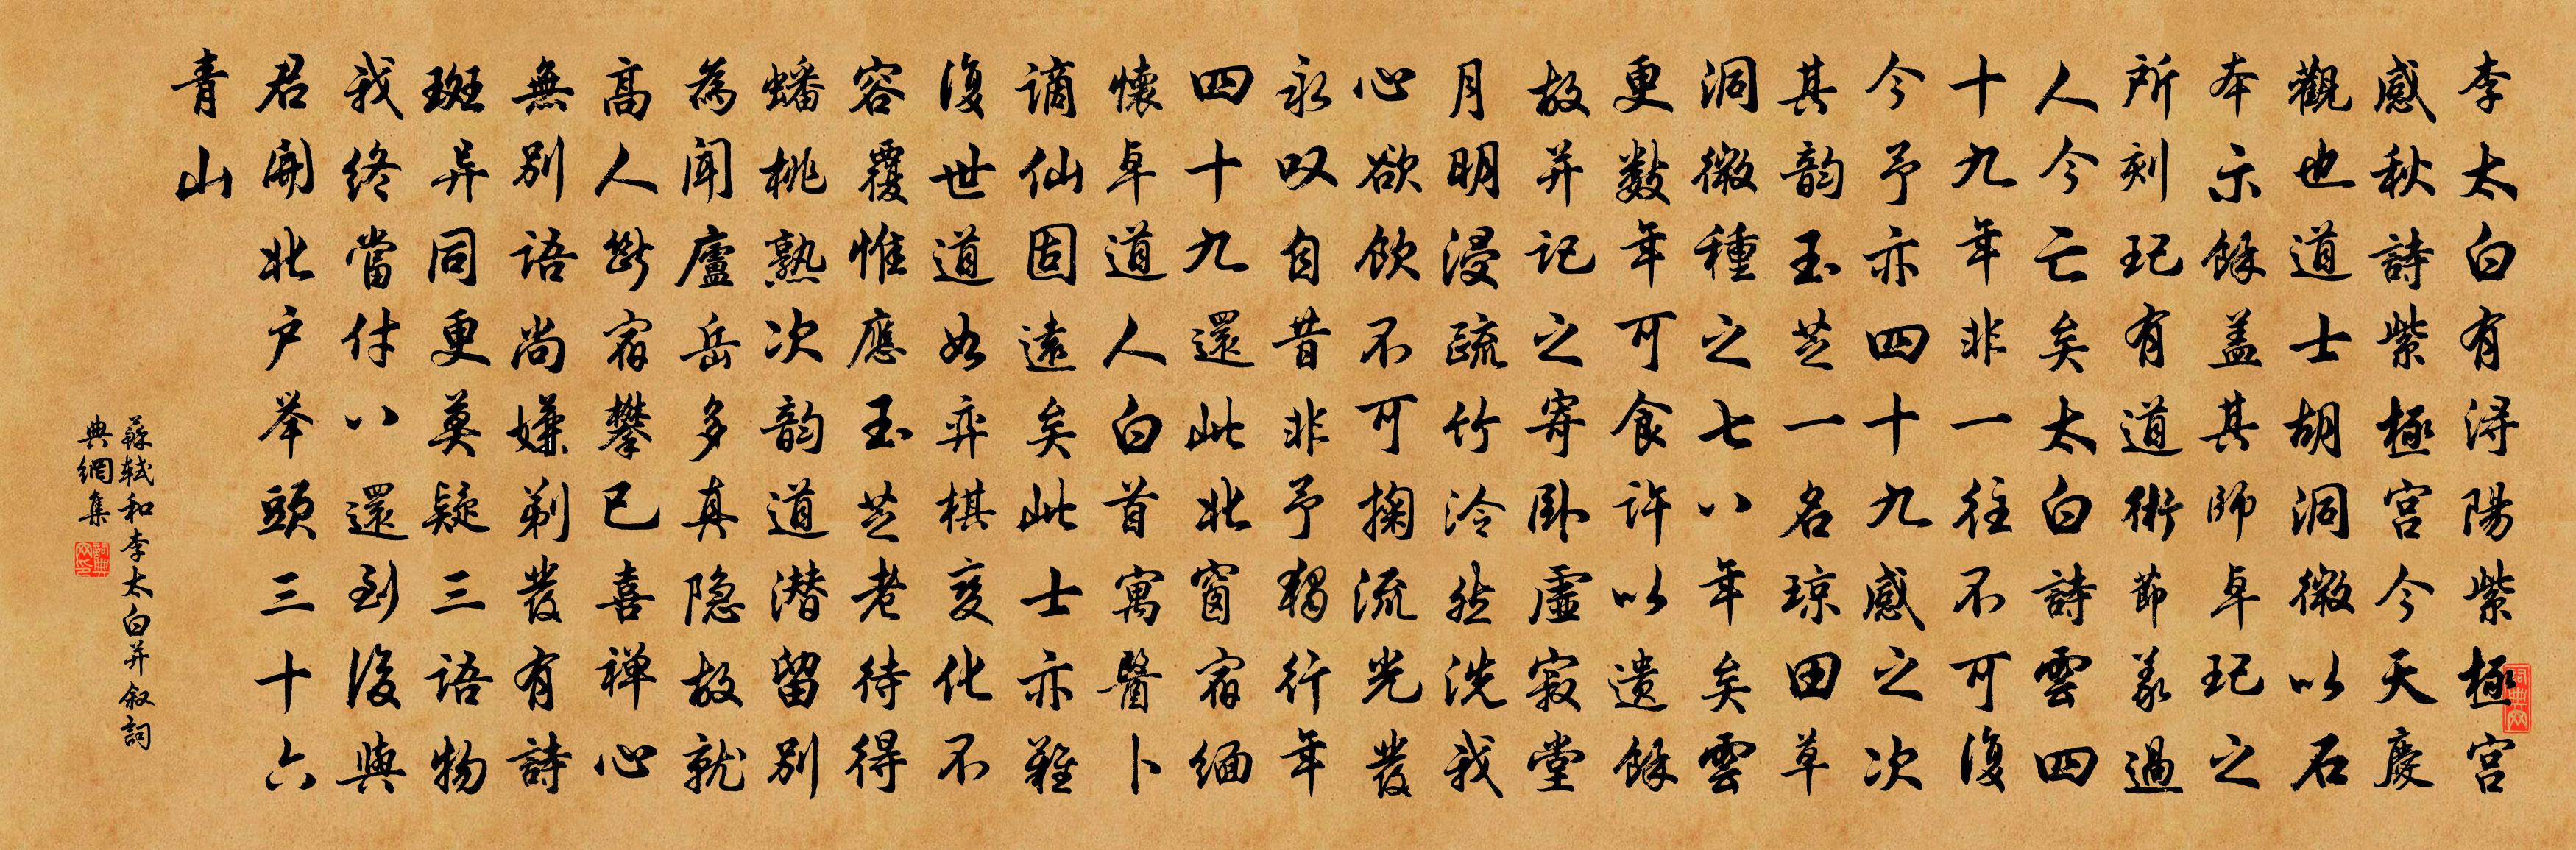 李太白有潯陽紫極宮
感秋詩紫極宮今天慶
觀也道士胡洞微以石
本示餘盖其師卓玘之
所刻玘有道術節義過
人今亡矣太白詩雲四
十九年非一往不可復
今予亦四十九感之次
其韵玉芝一名琼田草
洞微種之七八年矣雲
更數年可食許以遗餘
故并記之寄卧虛寂堂
月明浸疏竹泠然洗我
心欲飲不可掬流光發
永叹自昔非予獨行年
四十九還此北窗宿缅
懷卓道人白首寓醫卜
谪仙固遠矣此士亦難
復世道如弈棋变化不
容覆惟應玉芝老待得
蟠桃熟次韵道潜留别
為聞廬岳多真隐故就
高人斷宿攀已喜禅心
無别語尚嫌剃發有詩
斑异同更莫疑三語物
我終當付八還到後與
君開北户举頭三十六
青山
蘇轼和李太白并叙詞
典網集